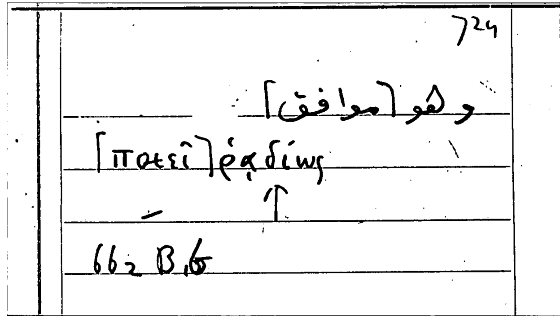 724
وهو [موافق]
[ποιεῖ] ῥᾳδίως
↑
662 B,6